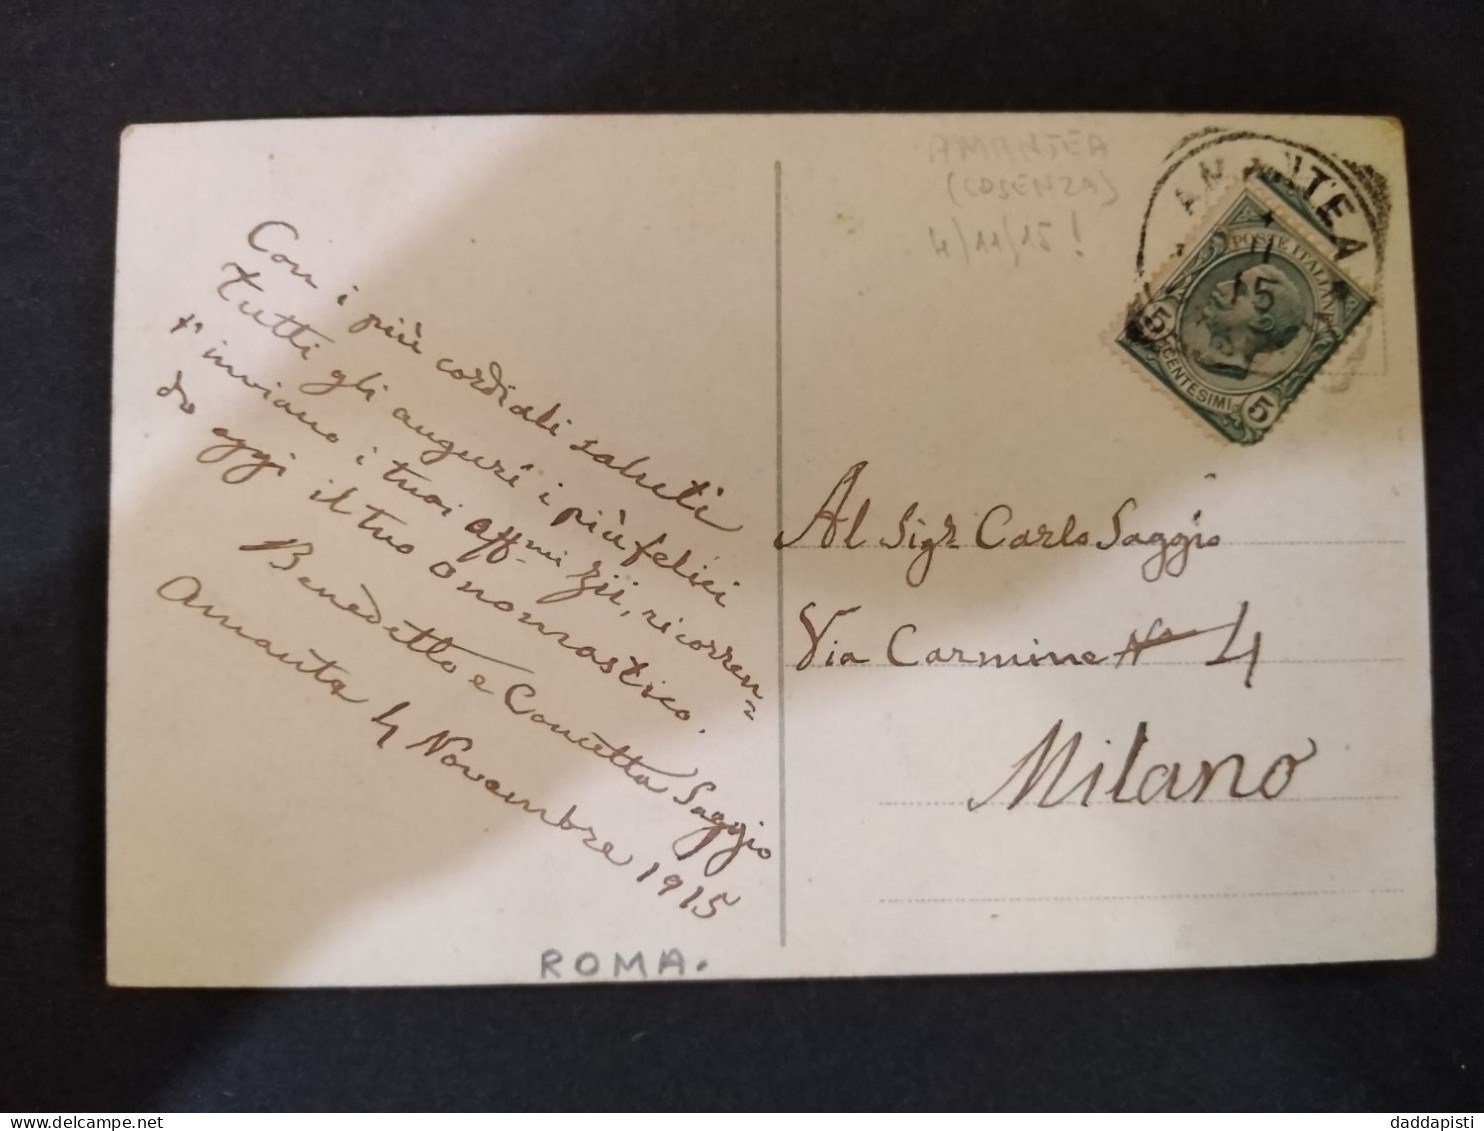 Con i più cordiali saluti
tutti gli auguri i più felici
t'inviano i tuoi aff.mi Zii, ricorren=
do oggi il tuo onomastico.
Benedetto e Concetta Saggio
Amantea 4 Novembre 1915
ROMA.
AMANTEA
(COSENZA)
4/11/15!
AMANTEA
11
15
POSTE ITALIANE
5
CENTESIMI
5
Al Sigr Carlo Saggio
Via Carmine No 4
Milano
delcampe.net
daddapisti